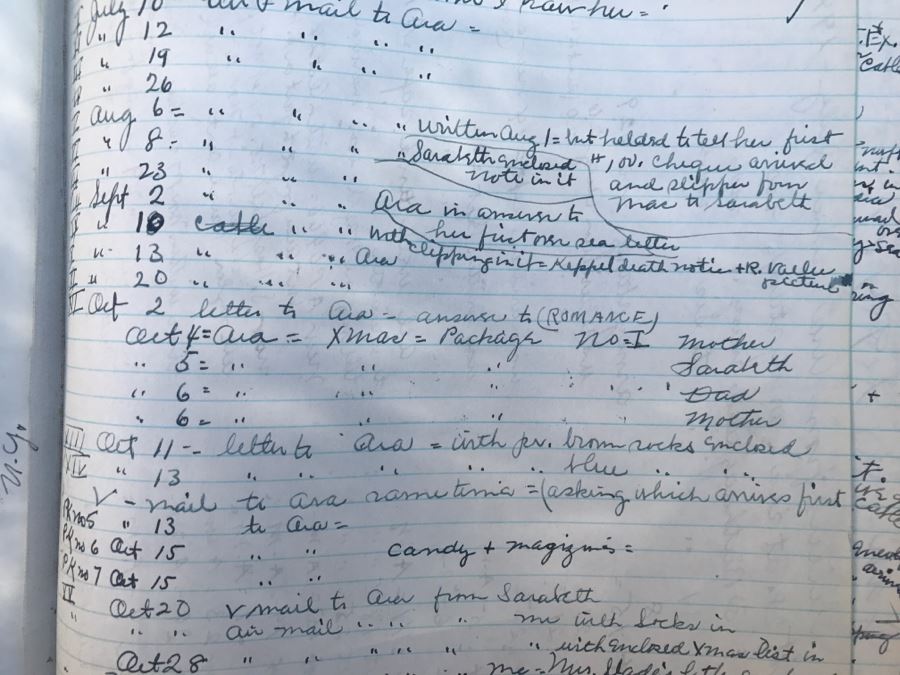 July 10 air V mail to Ara =
" 12 " " " "
" 19 " " " "
" 26
Aug 6 = " " " " written Aug 1 = but helded to tell her first
" 8 = " " " " Sarabeth enclosed note in it #1, ov. cheque arrived
" 23 " " " and slipper from
Sept 2 " " " Mac to Sarabeth
" 10 cable " " Ara in answer to
with her first over sea letter
" 13 " " " Ara clipping in it = Keppel death notice + R. Vallee picture
" 20 " " "
Oct 2 letter to Ara = answer to (ROMANCE)
Oct 4 = Ara = Xmas = Package No = I Mother
" 5 = " " " Sarabeth
" 6 = " " " Dad
" 6 = " " " Mother
XIII Oct 11 - letter to Ara = with pr. brown socks enclosed
XIV " 13 " " " " " blue " "
V - mail to Ara same time = (asking which arrives first
PK no 5 " 13 to Ara =
PK no 6 Oct 15 " " candy + magizines =
PK no 7 Oct 15 " "
Oct 20 V mail to Ara from Sarabeth
" " " air mail " " " me with socks in
Oct 28 " " " " " with enclosed Xmas list in
me = Mrs.